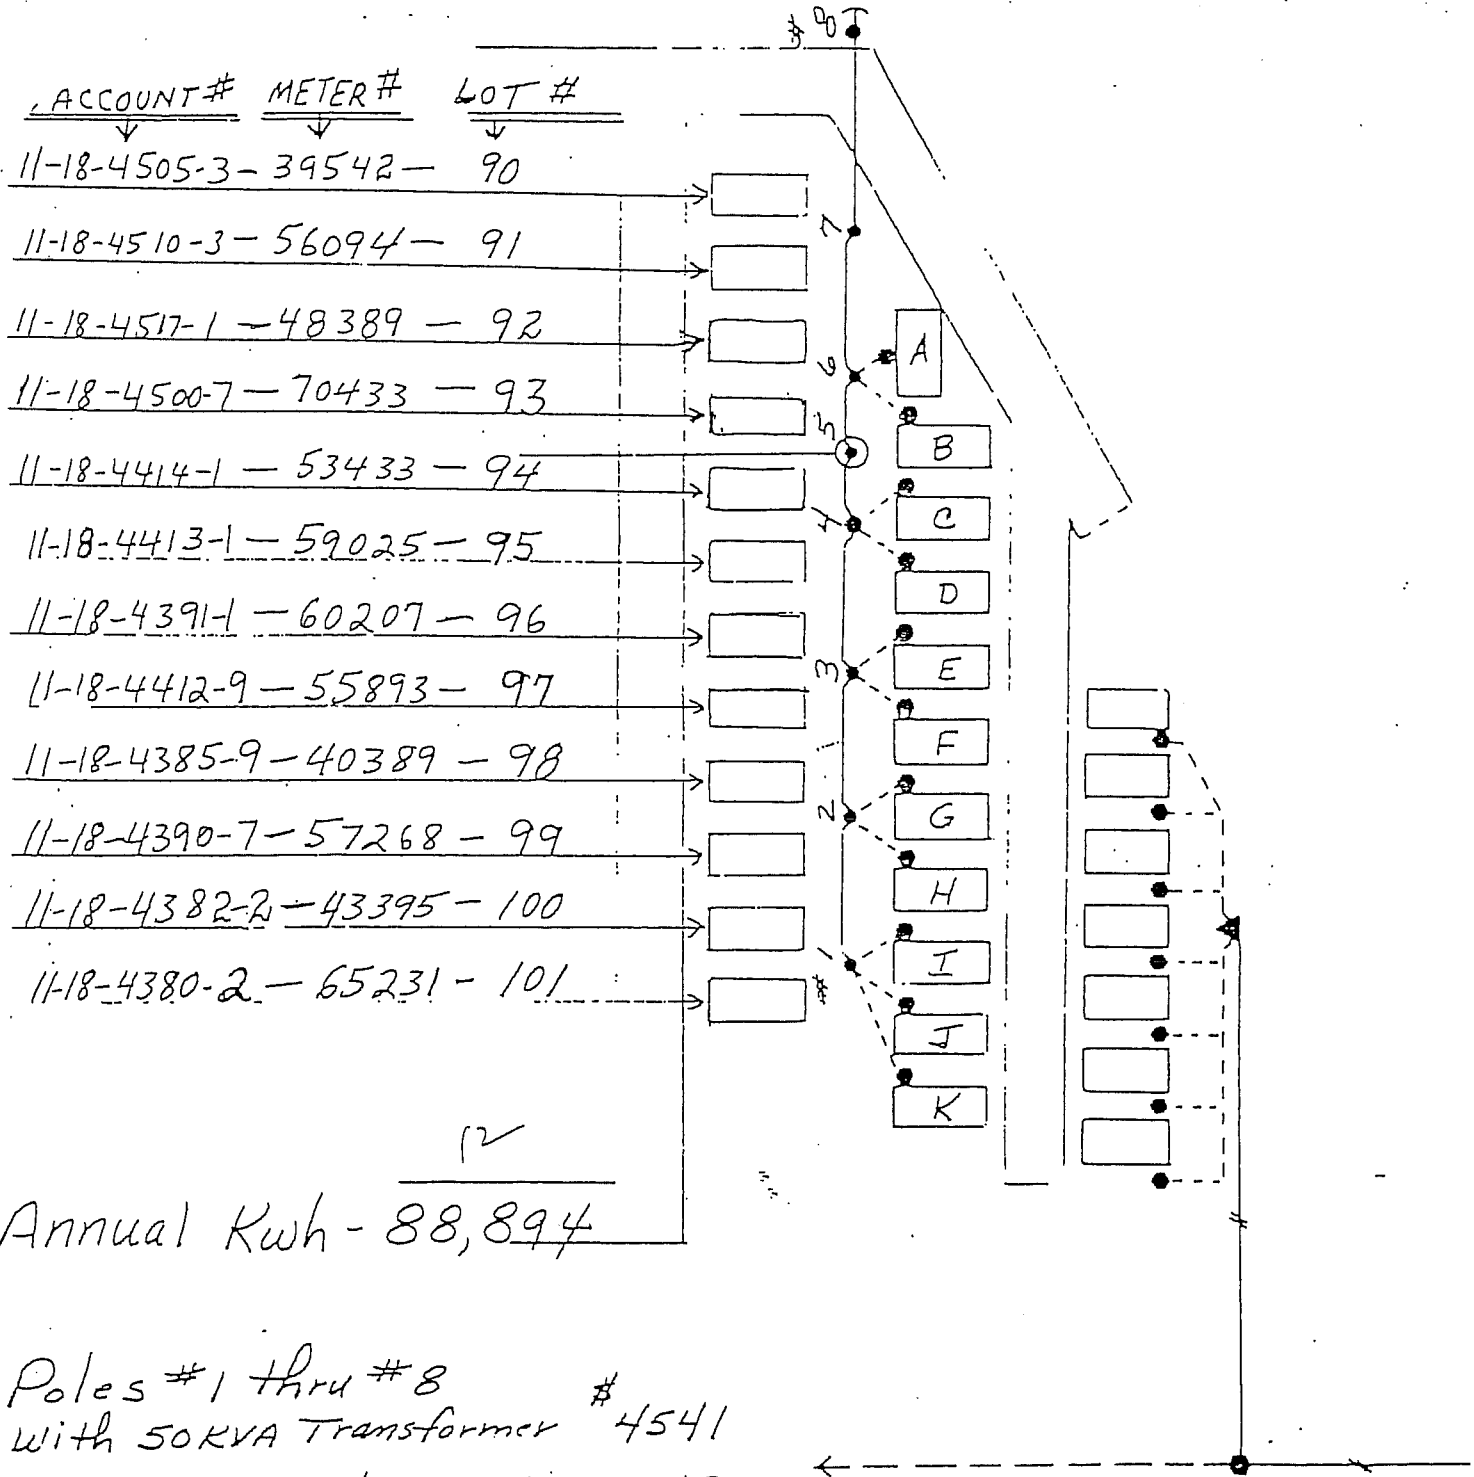 ACCOUNT# METER# LOT #
11-18-4505-3 - 39542 - 90
11-18-4510-3 - 56094 - 91
11-18-4517-1 - 48389 - 92
11-18-4500-7 - 70433 - 93
11-18-4414-1 - 53433 - 94
11-18-4413-1 - 59025 - 95
11-18-4391-1 - 60207 - 96
11-18-4412-9 - 55893 - 97
11-18-4385-9 - 40389 - 98
11-18-4390-7 - 57268 - 99
11-18-4382-2 - 43395 - 100
11-18-4380-2 - 65231 - 101
12
Annual Kwh - 88,894
Poles #1 thru #8
with 50KVA Transformer $4541
#8
7
6
5
4
3
2
#1
A
B
C
D
E
F
G
H
I
J
K